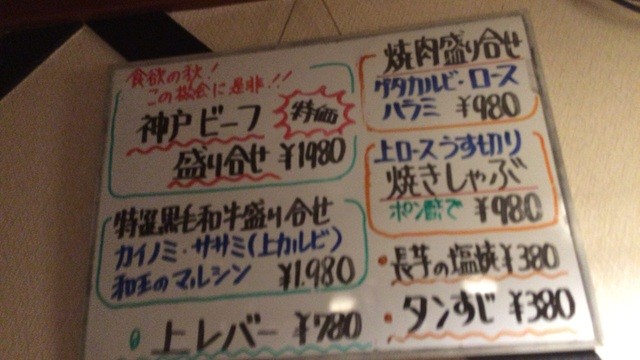 食欲の秋!
この機会に是非!!
神戸ビーフ 特価
盛り合せ ¥1980
特選黒毛和牛盛り合せ
カイノミ・ササミ(上カルビ)
和王のマルシン ¥1.980
上レバー ¥780
焼肉盛り合せ
ゲタカルビ・ロース
ハラミ ¥980
上ロースうす切り
焼きしゃぶ
ポン酢で ¥980
・長芋の塩焼 ¥380
・タンすじ ¥380